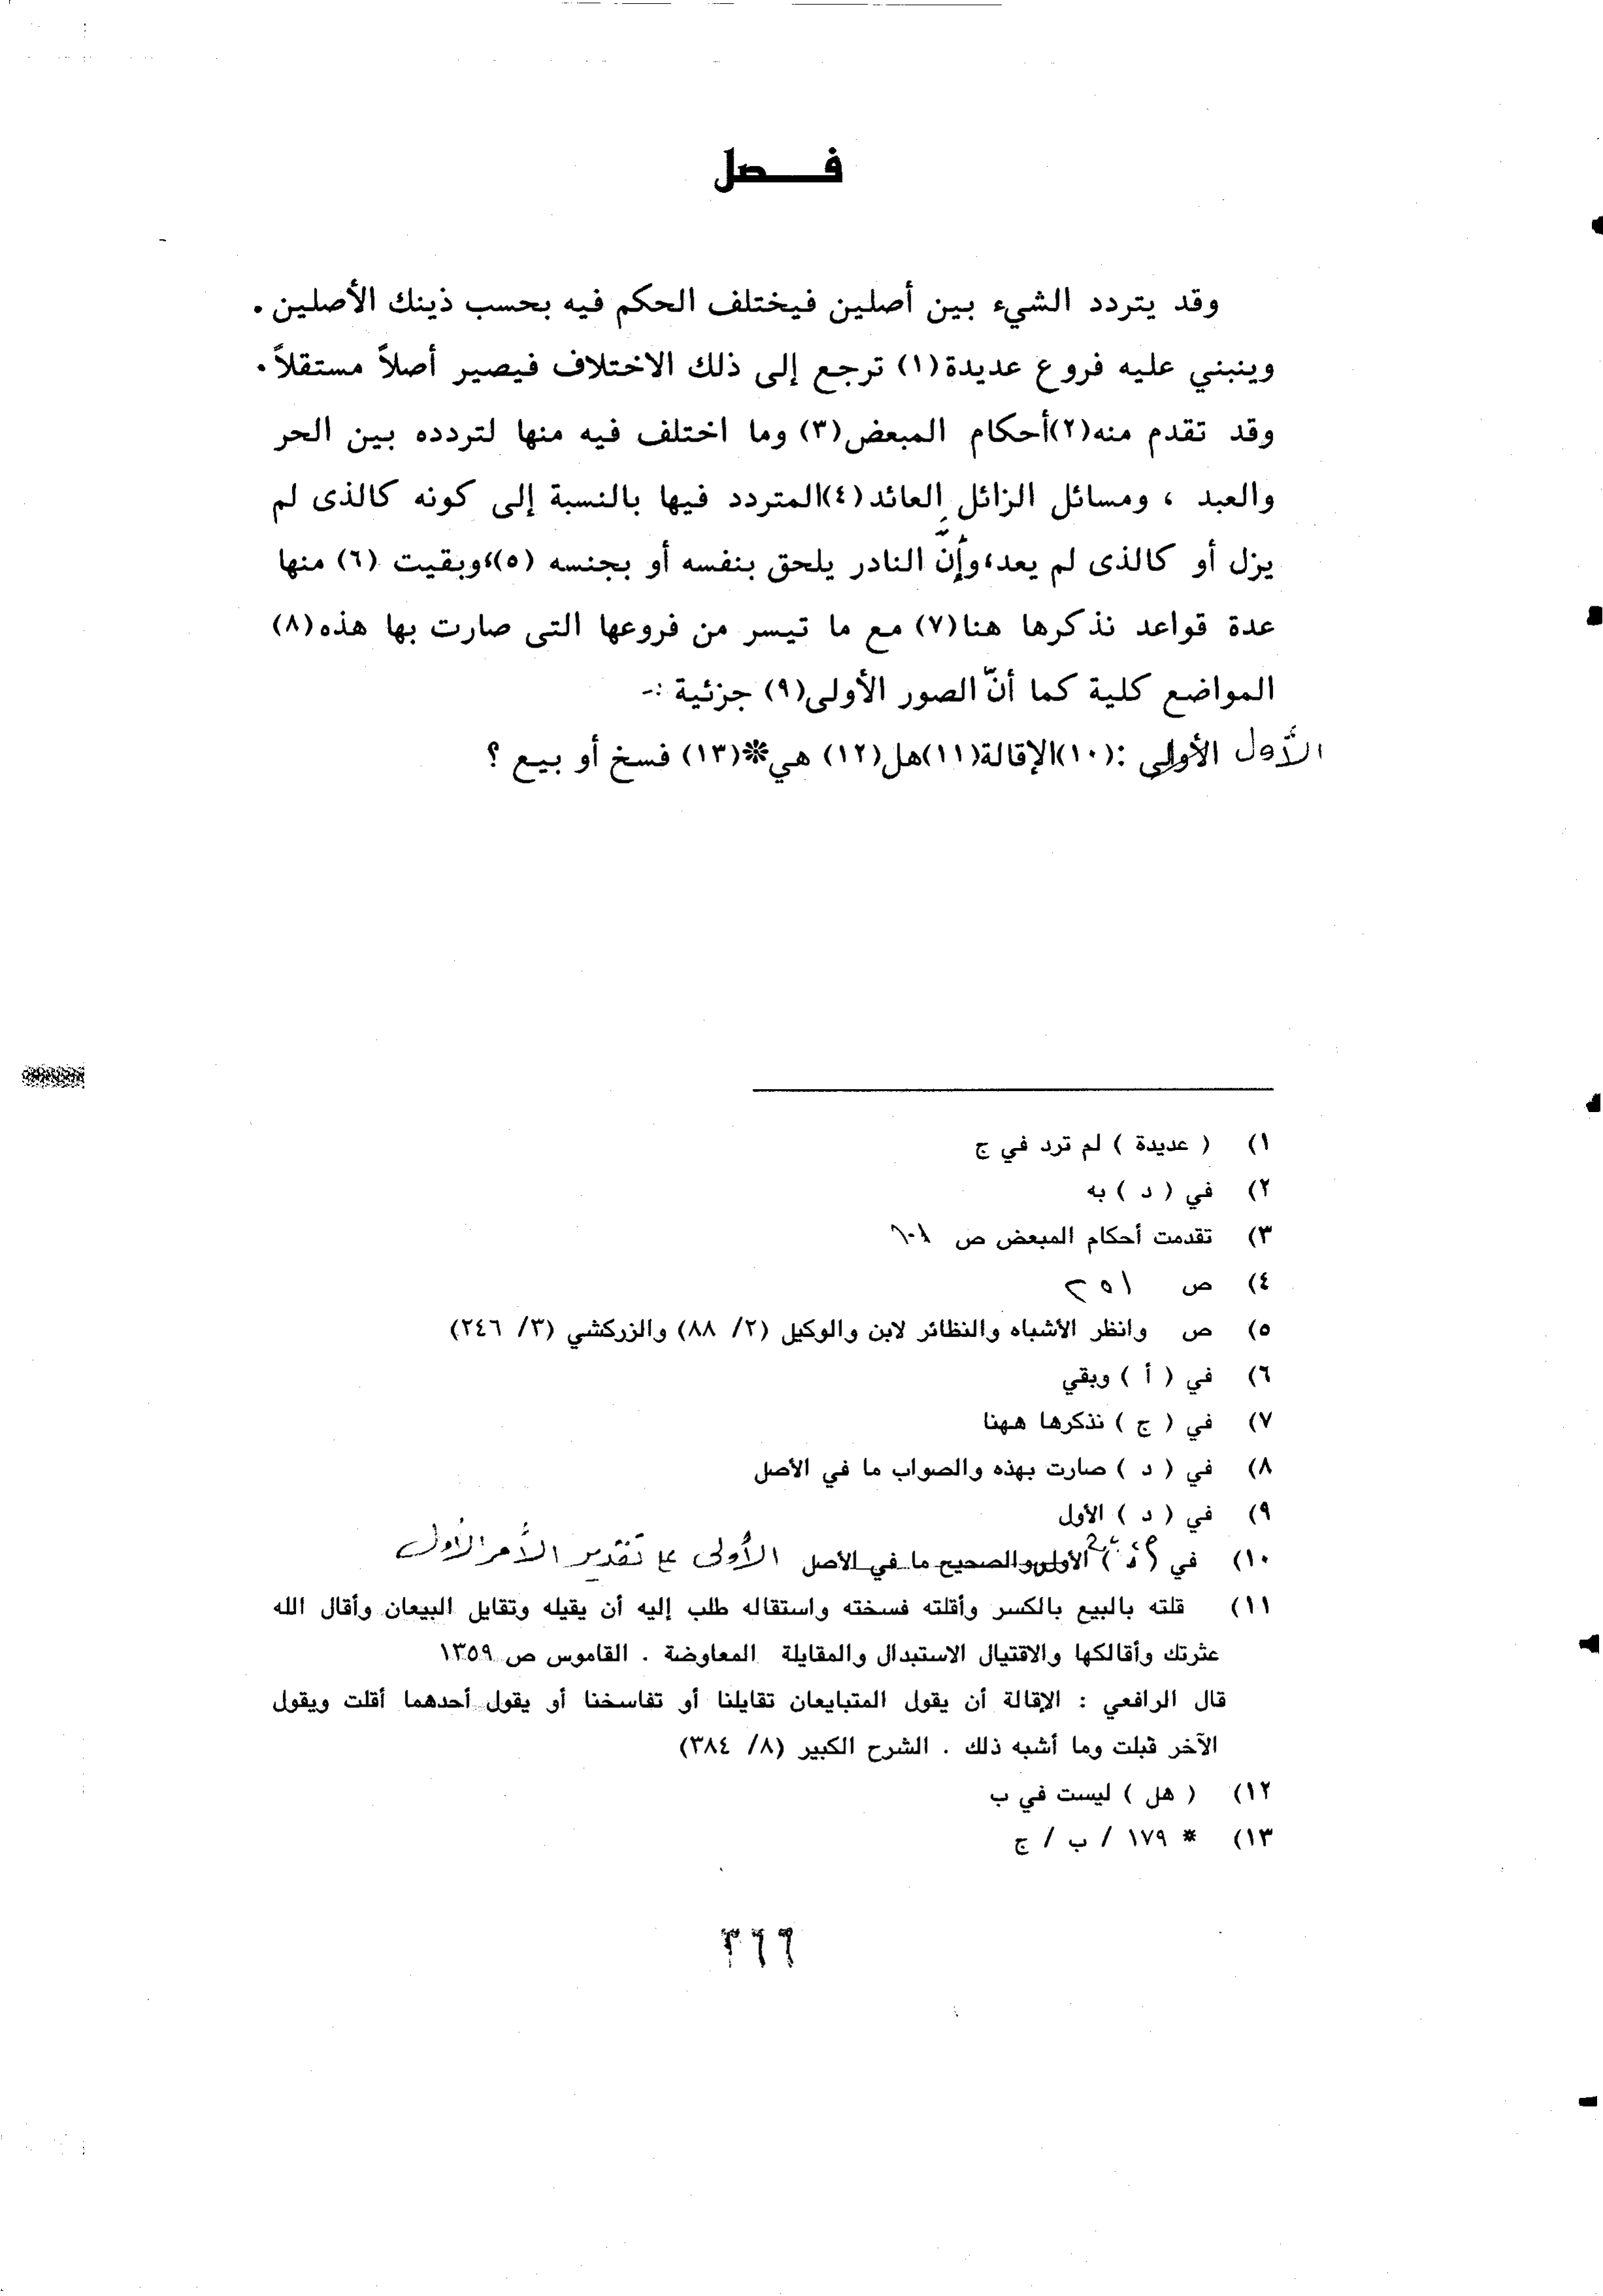 فـــصل
وقد يتردد الشيء بين أصلين فيختلف الحكم فيه بحسب ذينك الأصلين .
وينبني عليه فروع عديدة(١) ترجع إلى ذلك الاختلاف فيصير أصلاً مستقلاً.
وقد تقدم منه(٢)أحكام المبعض(٣) وما اختلف فيه منها لتردده بين الحر
والعبد ، ومسائل الزائل العائد(٤)المتردد فيها بالنسبة إلى كونه كالذى لم
يزل أو كالذى لم يعد،وإنَّ النادر يلحق بنفسه أو بجنسه (٥)،وبقيت (٦) منها
عدة قواعد نذكرها هنا(٧) مع ما تيسر من فروعها التى صارت بها هذه(٨)
المواضع كلية كما أنّ الصور الأولى(٩) جزئية :-
الأول الأولى :(١٠)الإقالة(١١)هل(١٢) هي*(١٣) فسخ أو بيع ؟
١) ( عديدة ) لم ترد في ج
٢) في ( د ) به
٣) تقدمت أحكام المبعض ص
٤) ص ٢٥١
٥) ص وانظر الأشباه والنظائر لابن والوكيل (٢/ ٨٨) والزركشي (٣/ ٢٤٦)
٦) في ( أ ) وبقي
٧) في ( ج ) نذكرها ههنا
٨) في ( د ) صارت بهذه والصواب ما في الأصل
٩) في ( د ) الأول
١٠) في الأولى والصحيح ما في الأصل الأولى على تقدير الأمر الأول
١١) قلته بالبيع بالكسر وأقلته فسخته واستقاله طلب إليه أن يقيله وتقايل البيعان وأقال الله
عثرتك وأقالكها والاقتيال الاستبدال والمقايلة المعاوضة . القاموس ص ١٣٥٩
قال الرافعي : الإقالة أن يقول المتبايعان تقايلنا أو تفاسخنا أو يقول أحدهما أقلت ويقول
الآخر قبلت وما أشبه ذلك . الشرح الكبير (٨/ ٣٨٤)
١٢) ( هل ) ليست في ب
١٣) * ١٧٩ / ب / ج
٣٦٦